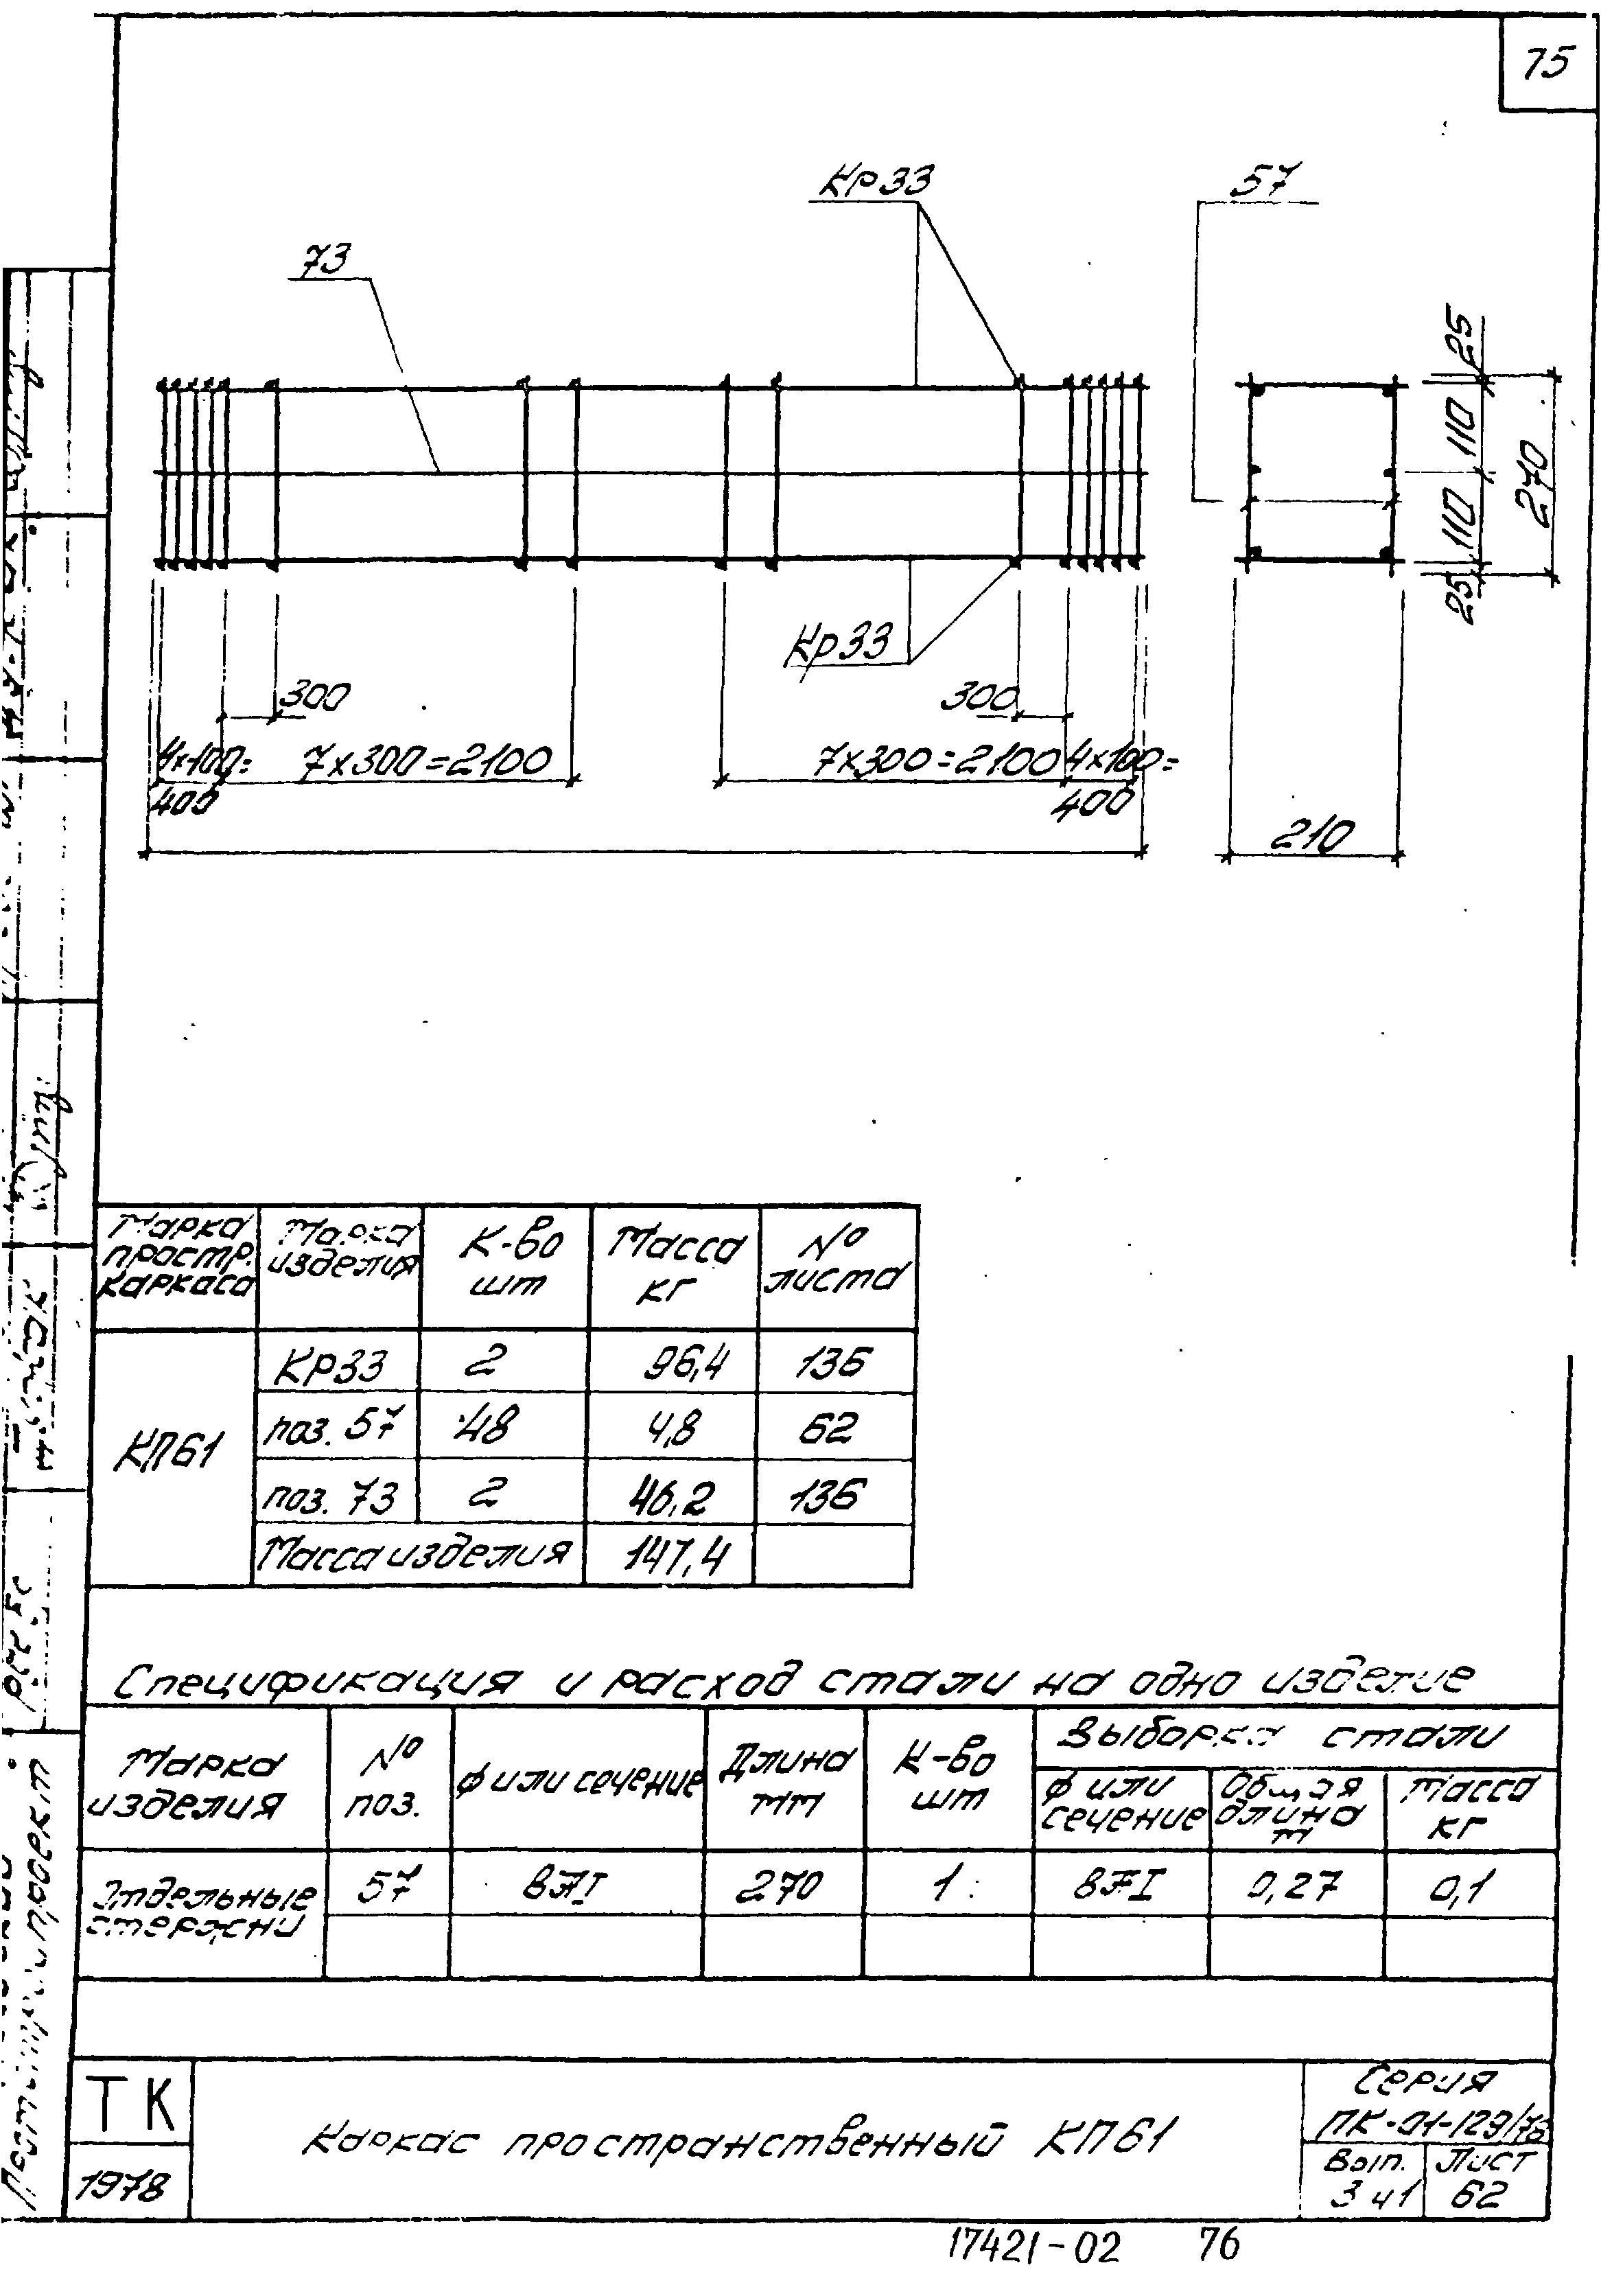 75
Кр33
57
73
25
110
270
110
25
Кр33
300
300
4х100=
7х300=2100
7х300=2100
4х100=
400
400
210
Марка простр. каркаса
Марка изделия
К-во шт
Масса кг
№ листа
КП61
КР33 2 96,4 136
поз. 57 48 4,8 62
поз. 73 2 46,2 136
Масса изделия 147,4
Спецификация и расход стали на одно изделие
Марка изделия
№ поз.
ф или сечение
Длина мм
К-во шт
Выборка стали
ф или сечение
Общая длина м
Масса кг
Отдельные стержни
57 8АI 270 1 8АI 0,27 0,1
ТК
1978
Каркас пространственный КП61
Серия
ПК-01-129/78
Вып. 3 ч1
Лист 62
17421-02 76